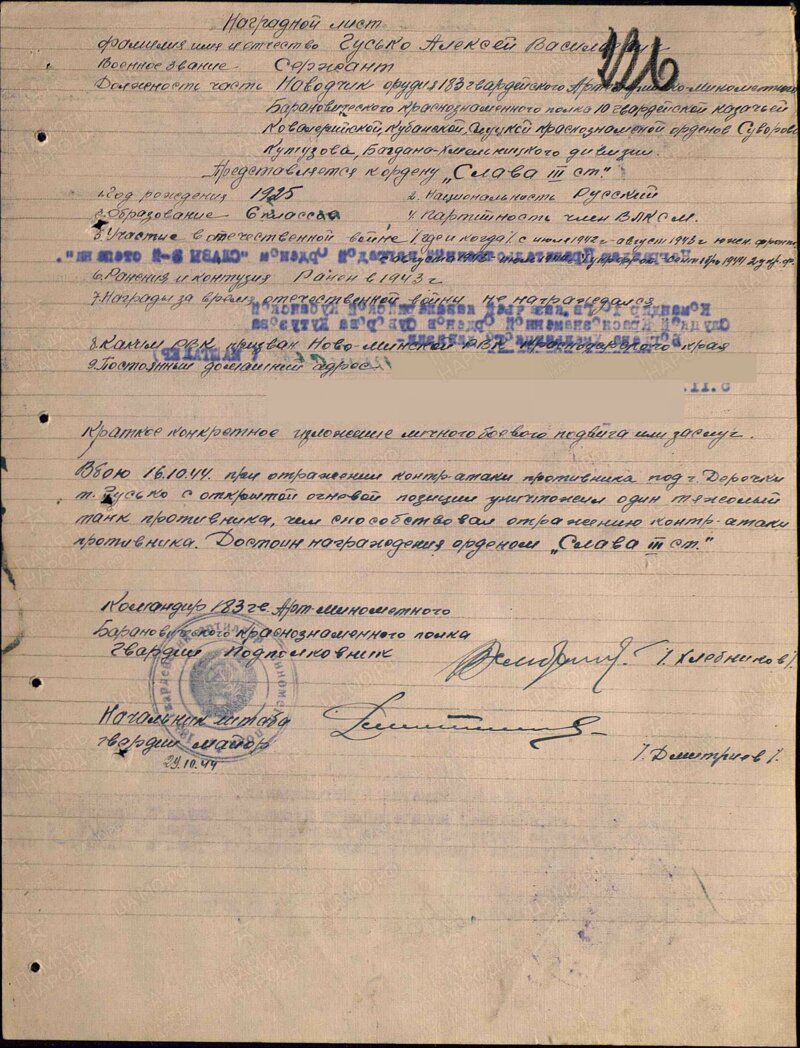 Наградной лист
Фамилия имя и отчество Гусько Алексей
226
Военное звание Сержант
Должность часть Наводчик орудия 183 гвардейского
Барановического Краснознаменного полка 10 гвардейской казачьей
Ковалерийской, Кубанской, Слуцкой краснознаменой орденов Суворова
Кутузова, Богдана-Хмельницкого дивизии
Представляется к ордену „Слава III ст"
1. Год рождения 1925 2. Национальность Русский
3. Образование 6 классов 4. Партийность член ВЛКСМ.
5. Участие в отечественной войне /где и когда/ с июля 1942 г - август 1943 г южн. фронт
6. Ранения и контузия Ранен в 1943 г
7. Награды за время отечественной войны не награждался
8. Каким РВК призван Ново-Минской РВК Краснодарского края
9. Постоянный домашний адрес
Краткое конкретное изложение личного боевого подвига или заслуг.
В бою 16.10.44. при отражении контр-атаки противника под г. Дерочки
т. Гусько с открытой огневой позиции уничтожил один тяжолый
танк противника, чем способствовал отражению контр-атаки
противника. Достоин награждения орденом „Слава III ст."
Командир 183 гв. Арт-минометного
Барановического краснознаменного полка
Гвардии Подполковник /Хлебников/.
Начальник штаба
гвардии майор /Дмитриев/.
29.10.44